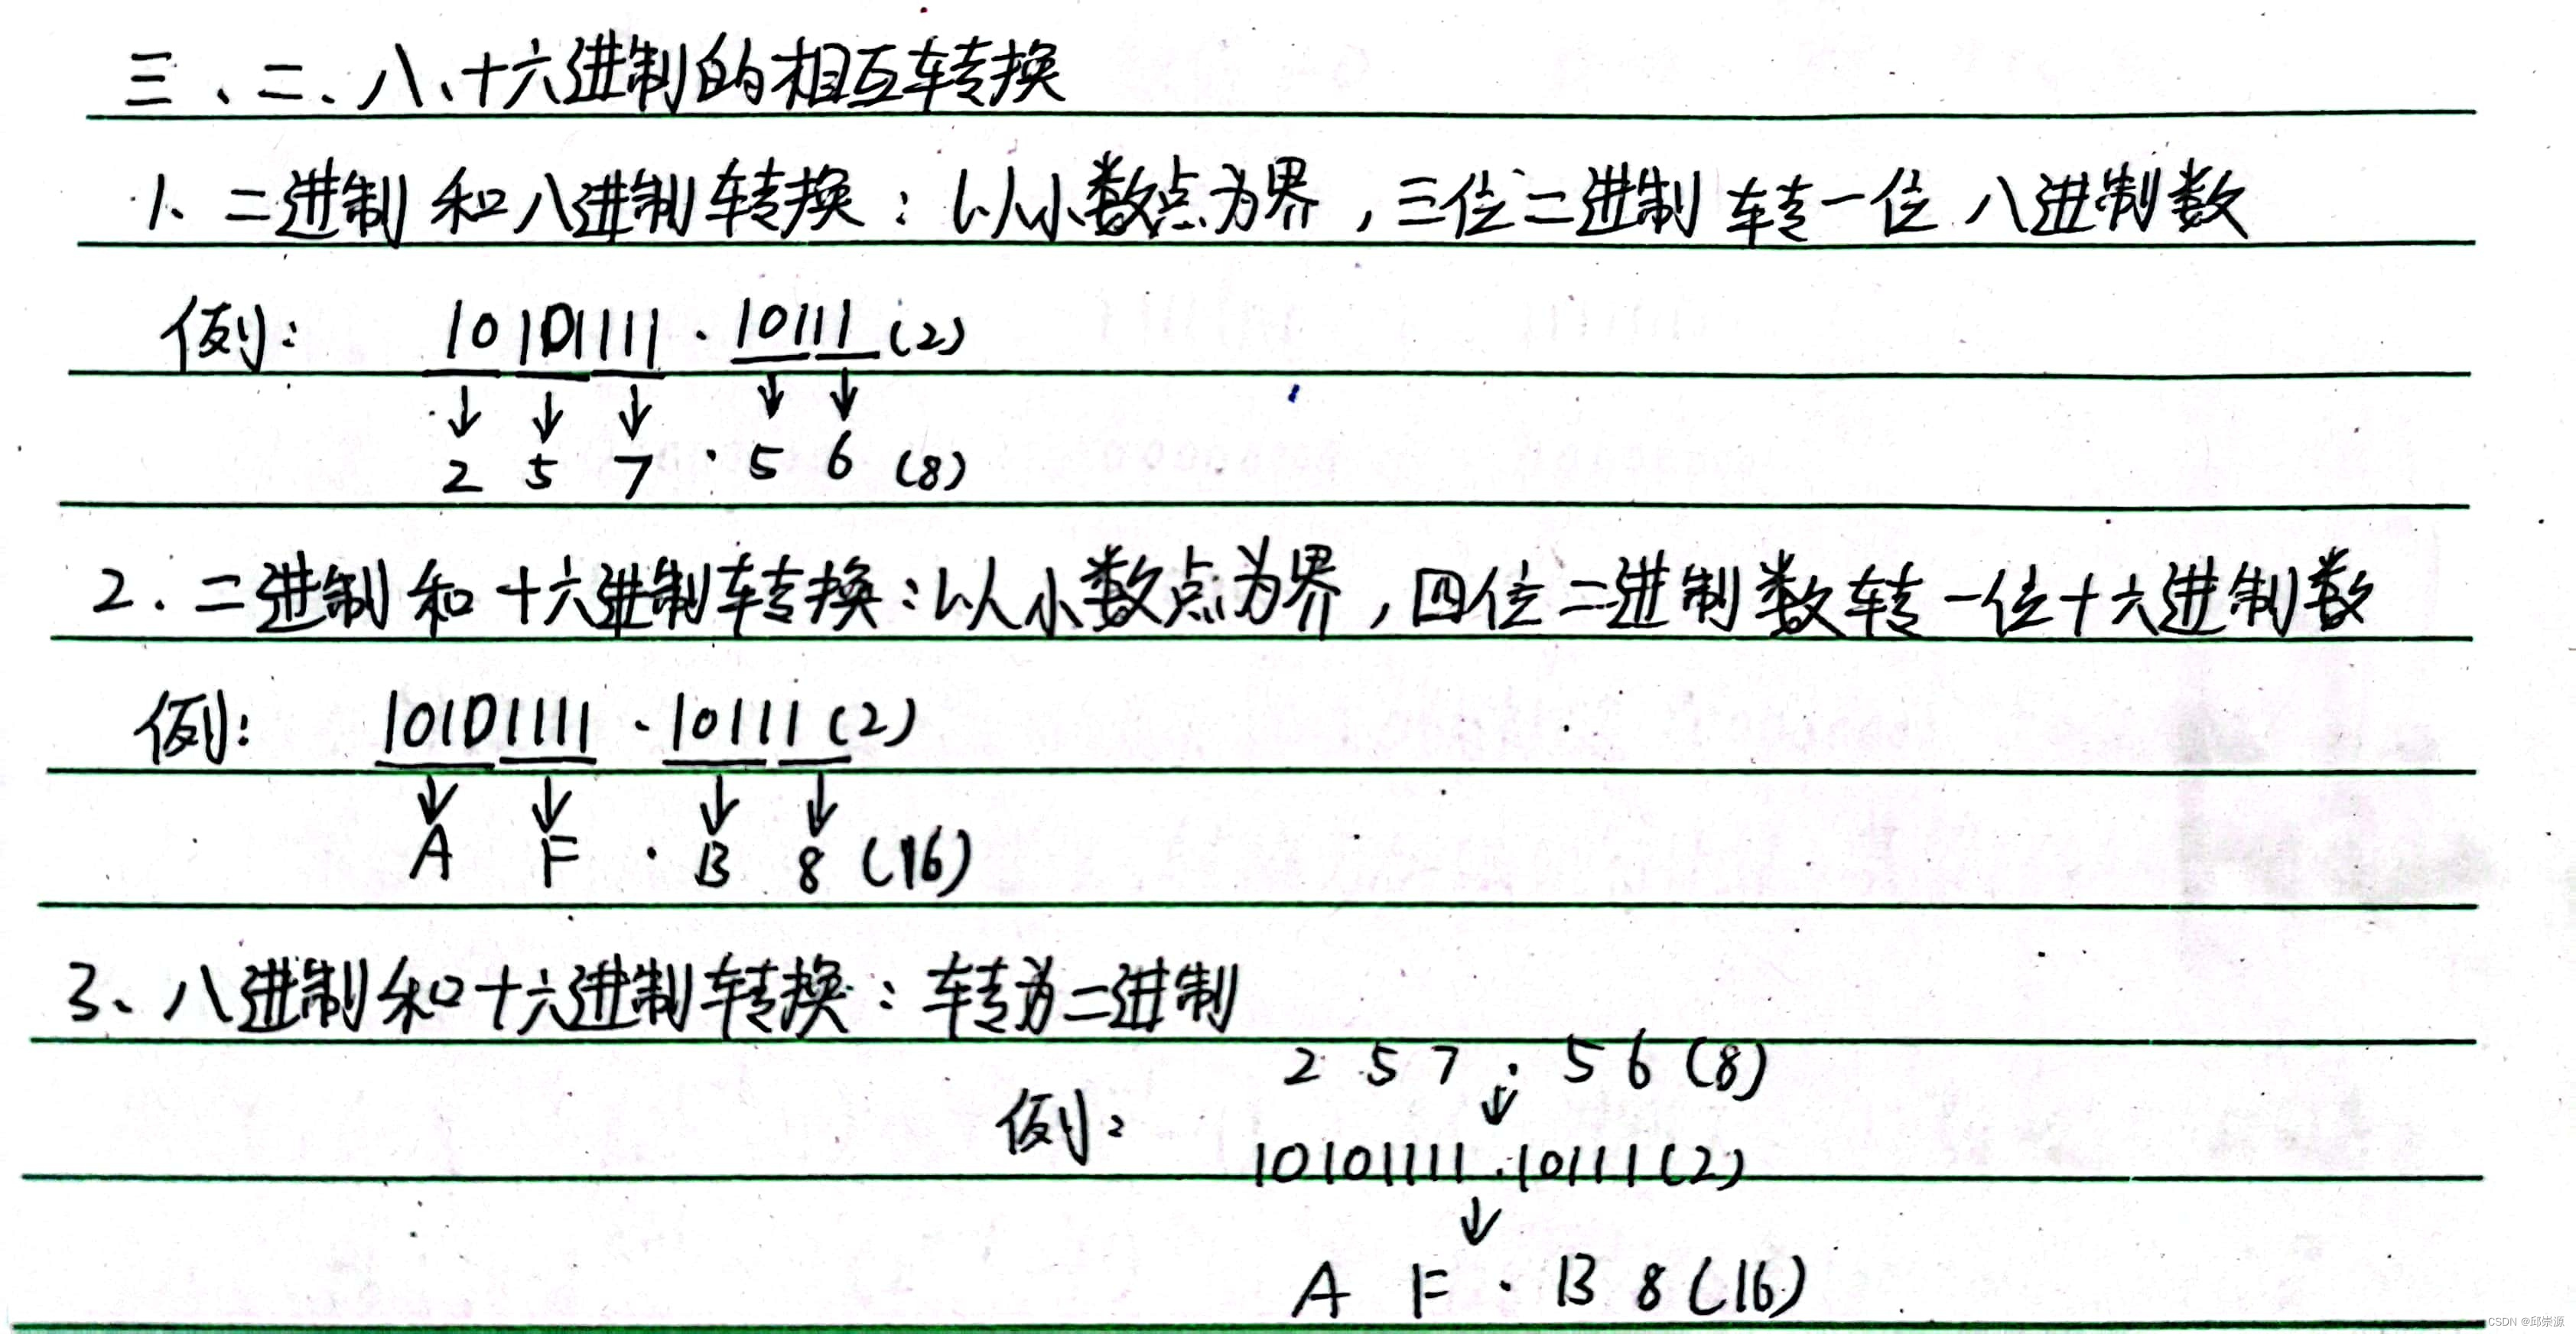 三、二、八、十六进制的相互转换
1、二进制和八进制转换：以小数点为界，三位二进制转一位八进制数
例： 10101111.10111(2)
↓ ↓ ↓ ↓ ↓
2 5 7 . 5 6 (8)
2. 二进制和十六进制转换：以小数点为界，四位二进制数转一位十六进制数
例： 10101111.10111(2)
↓ ↓ ↓ ↓
A F . B 8 (16)
3、八进制和十六进制转换：转为二进制
2 5 7 . 5 6 (8)
例： ↓
10101111.10111(2)
↓
A F . B 8 (16)
CSDN @邱崇源